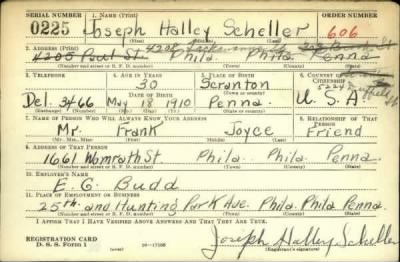 SERIAL NUMBER 1. NAME (Print) ORDER NUMBER
0225 Joseph Halley Scheller 606
2. ADDRESS (Print)
4205 Paul St. Phila. Phila. Penna
(Number and street or R. F. D. number) (Town) (County) (State)
3. TELEPHONE 4. AGE IN YEARS 5. PLACE OF BIRTH 6. COUNTRY OF CITIZENSHIP
30 Scranton
DATE OF BIRTH (Town or county)
Del. 3466 May 18 1910 Penna. U.S.A.
(Exchange) (Number) (Mo.) (Day) (Yr.) (State or country)
7. NAME OF PERSON WHO WILL ALWAYS KNOW YOUR ADDRESS 8. RELATIONSHIP OF THAT PERSON
Mr. Frank Joyce Friend
(Mr., Mrs., Miss) (First) (Middle) (Last)
9. ADDRESS OF THAT PERSON
1661 Womrath St. Phila. Phila. Penna.
(Number and street or R. F. D. number) (Town) (County) (State)
10. EMPLOYER'S NAME
E. G. Budd
11. PLACE OF EMPLOYMENT OR BUSINESS
25th. and Hunting Park Ave. Phila. Phila Penna.
(Number and street or R. F. D. number) (Town) (County) (State)
I AFFIRM THAT I HAVE VERIFIED ABOVE ANSWERS AND THAT THEY ARE TRUE.
REGISTRATION CARD
D. S. S. Form 1 (over) 16—17105 Joseph Halley Scheller
(Registrant's signature)